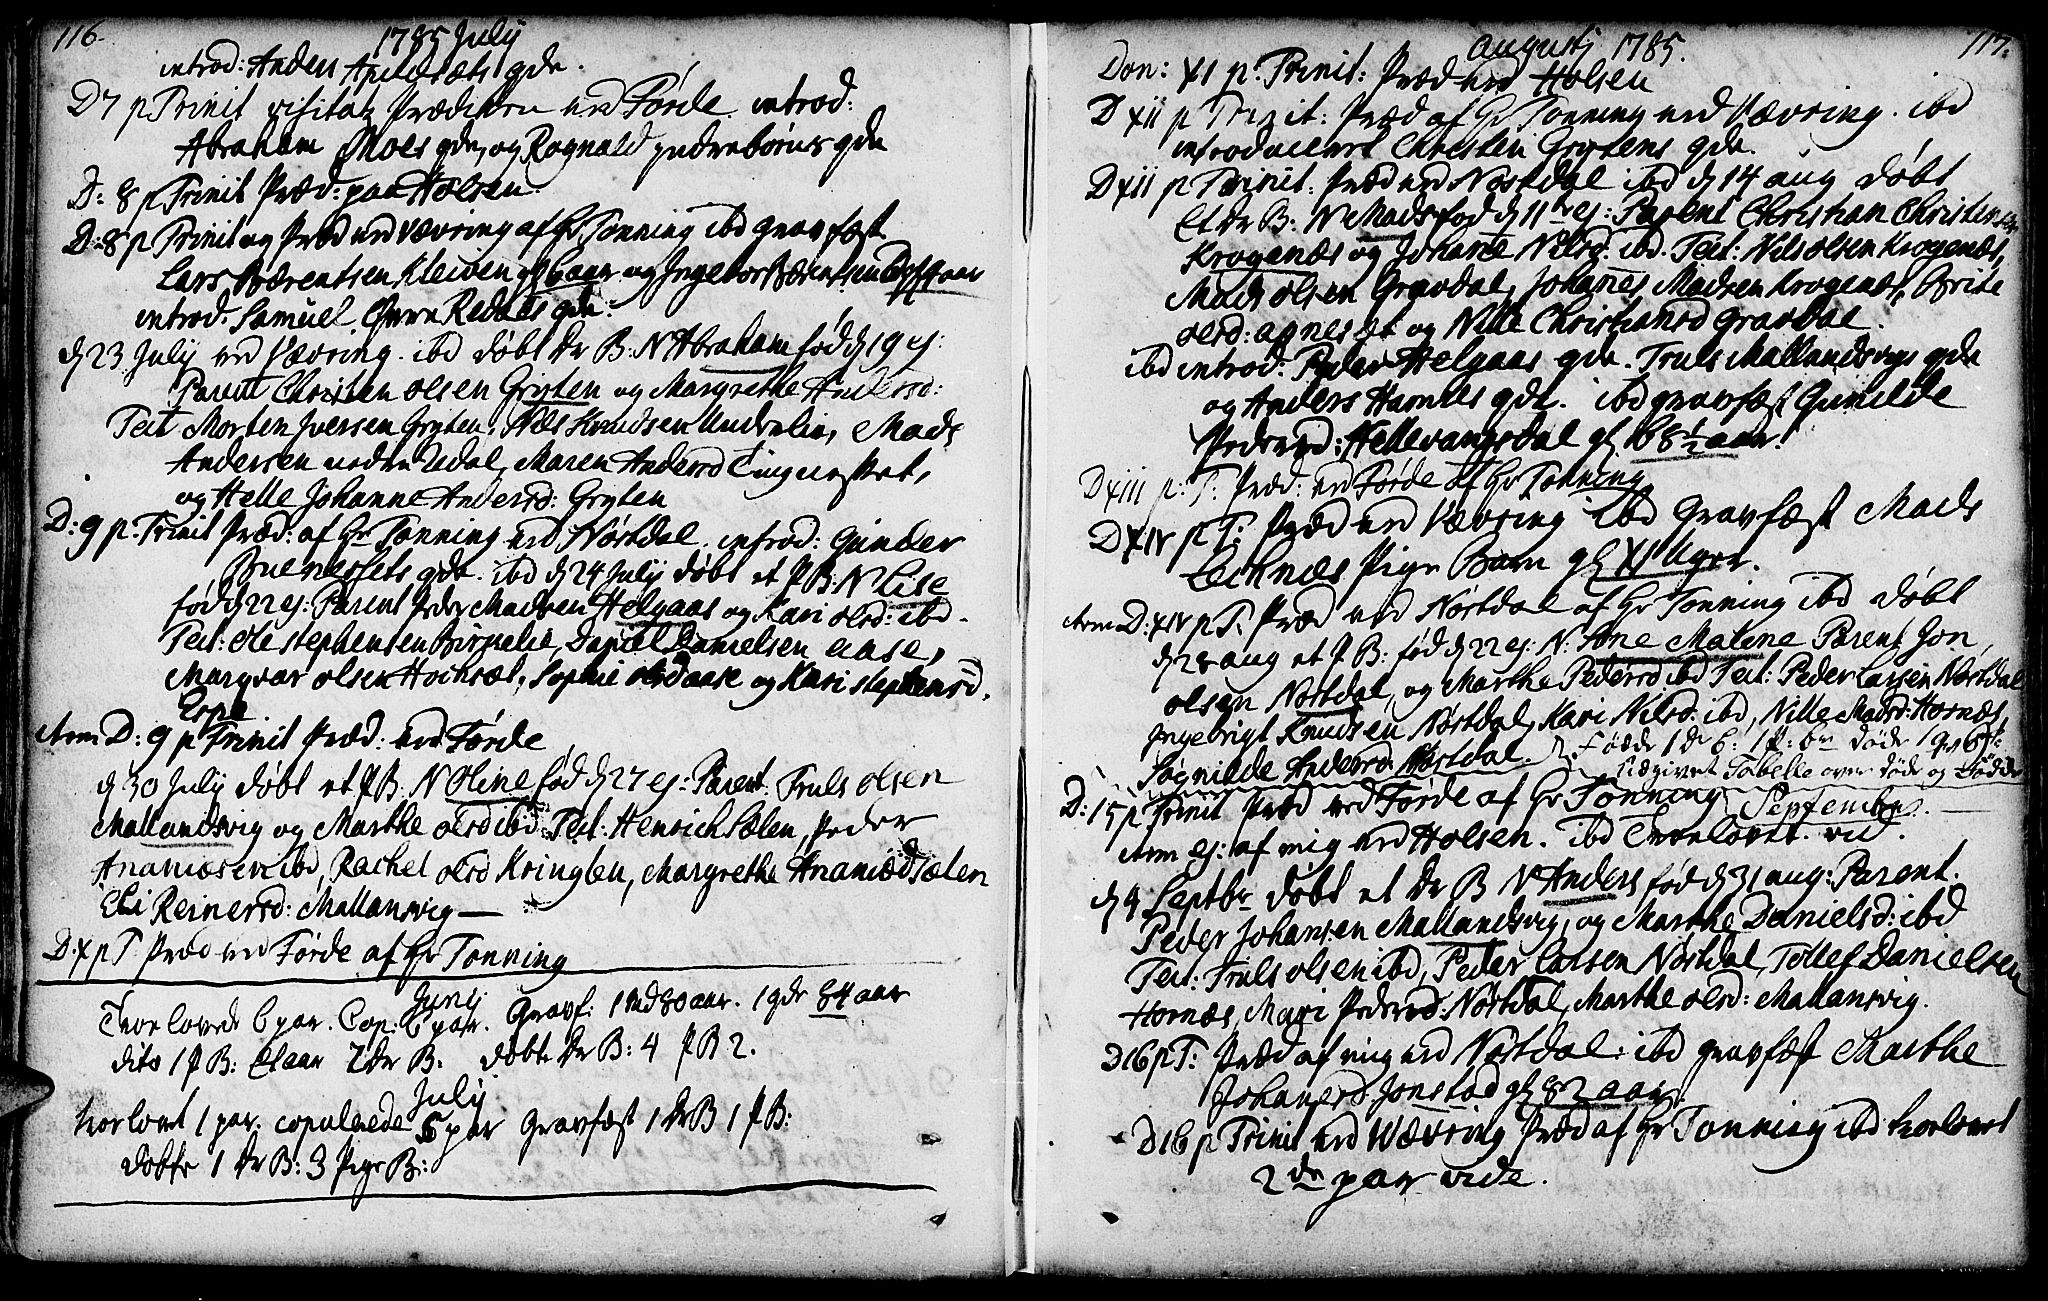 116.
1785 July
introd: Anders gde.
D 7 p Trinit visitatz Prædiken ved Førde. introd:
Abraham Moes gde, og Rognald gde
D: 8 p Trinit Præd: paa Holsen.
D: 8 p Trinit og Præd ved Vævring af Hr Tonning ibd gravfæst
Lars Bærentsen Kleiven gl aar og Ingebor Bærentsen aar
introd. Samuel Rednes gde.
d 23 July ved Vævring. ibd døbt Dr B: N Abraham fød d 19 ej:
Parent Christen olsen Gryten og Margrethe Andersd:
Test Morten Iversen Gryten, Nils Knudsen Mads
Andersen Maren Andersd
og Helle Johanne Andersd: Gryten
D: 9 p. Trinit Præd: af Hr Tonning ved Nøstdal. introd: Gunder
gde. ibd d 24 July døbt et P B: N Lise
fød d 22 ej: Parent Peder Madsen Helgaas og Kari olsd: ibd.
Test: Ole stephensen Birkelie, Daniel Danielsen aase,
olsen Sophie olsd aase og Kari stephensd.
Espe
Arm D: 9 p Trinit Præd: ved Førde
d 30 July døbt et P B: N Oline fød d 27 ej: Parent: Truls olsen
Mallandsvig og Marthe olsd ibd Test: Henrich Sælen, Peder
Ananiæsen ibd, Rachel olsd Kringlen, Margrethe Ananiæd Sælen
Eli Reinersd: Mallansvig —
D. X p T Præd ved Førde af Hr Tonning
Juny
Troelovede 6 par. Cop: 6 par. Gravf: 1 Md 80 aar. 1 gde 84 aar
dito 1 P B: Et aar 2 Dr B. døbte Dr B: 4 P B 2.
July
trolovet 1 par. copulerede 5 par Gravfæst 1 Dr B 1 P B:
døbte 1 Dr B: 3 Pige B:
Augustj 1785.
117.
Dom: XI p. Trinit: Præd ved Holsen
D XII p Trinit: Præd af Hr Tonning ved Vævring. ibd
introduceert Christen Grytens gde.
D XII p Trinit: Præd ved Nøstdal ibd d 14 aug døbt
et Dr B: N Mads fød d 11te ej: Parent Christian Christensen
Krogenæs og Johane Nilsd: ibd. Test: Nils olsen Krogenæs,
Mads olsen Gravdal, Johanes Madsen Krogenæs, Brite
olsd: og Nille Christiansd Gravdal.
ibd introd: Peder Helgaas gde. Truls Mallandsvigs gde
og Anders Hornes gde. ibd gravfæst Gunilde
Pedersd: gl 68½ aar.
D XIII p: T: Præd: ved Førde af Hr Tonning
D XIV p T: Præd ved Vævring ibd Gravfæst Mads
Lechnæs Pige Barn gl XI Uger.
Arm D: XIV p T: Præd ved Nøstdal af Hr Tonning ibd døbt
d 28 aug et P B: fød d 22 ej: N: Ane Malene Parent Jon
olsen Nøstdal, og Marthe Pedersd ibd Test: Peder Larsen Nøstdal
Ingebrigt Knudsen Nøstdal, Kari Nilsd: ibd, Nille Madsd: Hornæs,
Andersd: Nøstdal. Fødde 1 Dr b: 1 P: b
Tabelle over døde og Fødde
D: 15 p Trinit Præd ved Førde af Hr Tonning Septembr
Arm ej: af mig ved Holsen. ibd Troelovet vid.
d 4 Septbr døbt et Dr B N Anders fød d 31 aug: Parent.
Peder Johansen Mallandsvig, og Marthe Danielsd: ibd
Test: Truls olsen ibd, Peder Larsen Nøstdal, Tollef Danielsen
Hornæs, Mari Pedersd: Nøstdal, Marthe olsd: Mallansvig.
D 16 p T: Præd af mig ved Nøstdal: ibd gravfæst Marthe
Johanesd Jonstad gl 82 aar
D 16 p Trinit ved Wævring Præd af Hr Tonning ibd trolovet
2de par vide.